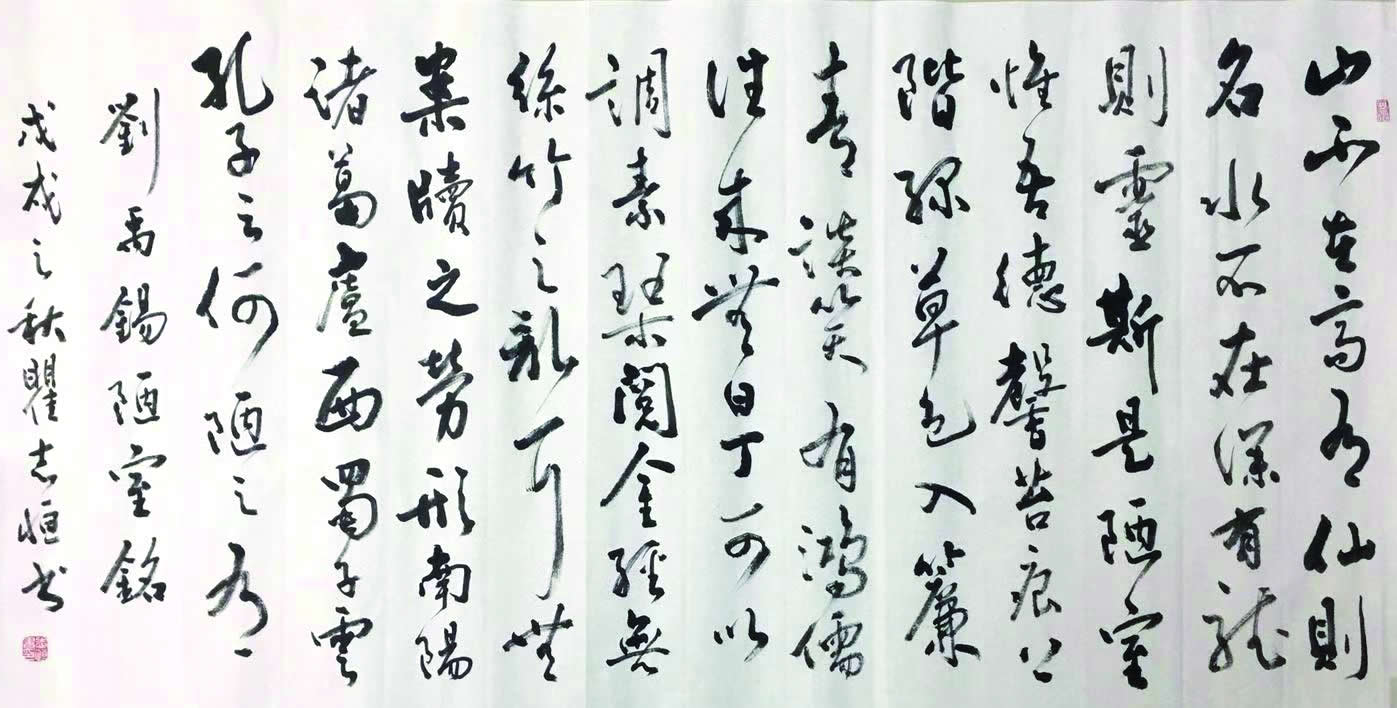 山不在高有仙則
名水不在深有龍
則靈斯是陋室
惟吾德馨苔痕上
階綠草色入簾
青談笑有鴻儒
往來無白丁可以
調素琴閱金經無
絲竹之亂耳無
案牘之勞形南陽
諸葛廬西蜀子雲
孔子云何陋之有
劉禹錫陋室銘
戊戌之秋瞿志恒书